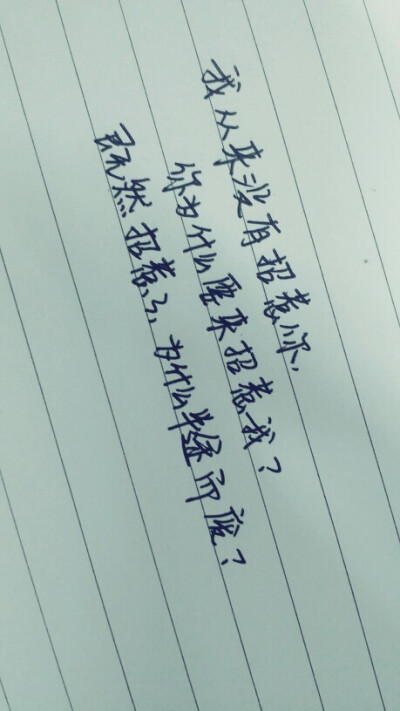 我从来没有招惹你，
你为什么要来招惹我？
既然招惹了，为什么半途而废？